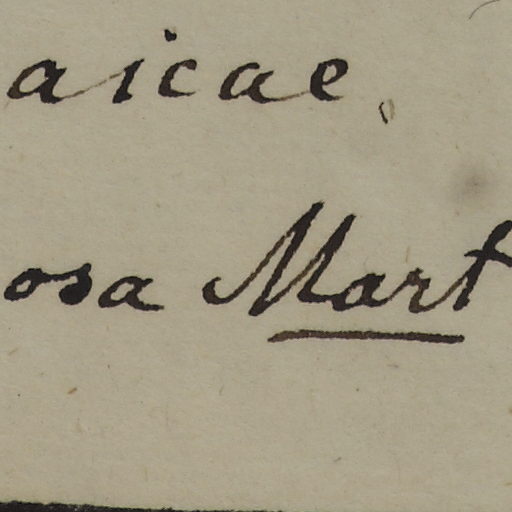 aicae,
osa Mart